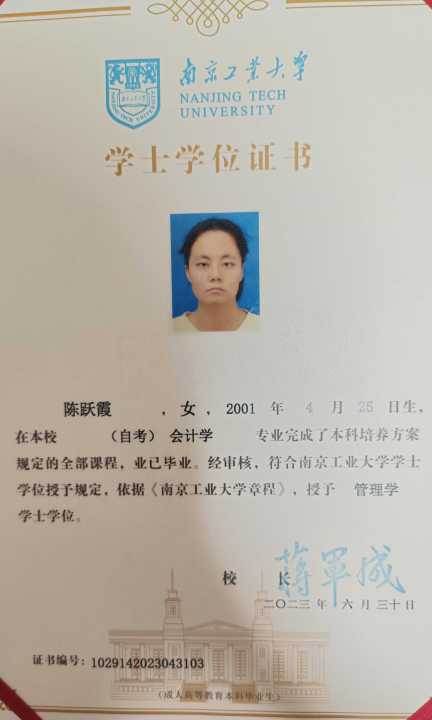 南京工业大学
NANJING TECH
UNIVERSITY
学士学位证书
陈跃霞 ，女，2001 年 4 月 25 日生，
在本校 （自考）会计学 专业完成了本科培养方案
规定的全部课程，业已毕业。经审核，符合南京工业大学学士
学位授予规定，依据《南京工业大学章程》，授予 管理学
学士学位。
校 长 蒋军成
二〇二三 年 六 月 三十 日
证书编号：1029142023043103
（成人高等教育本科毕业生）